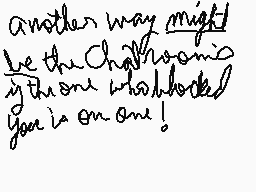 another way might
be the Chatroom's
if the one who blocked
you is on one!